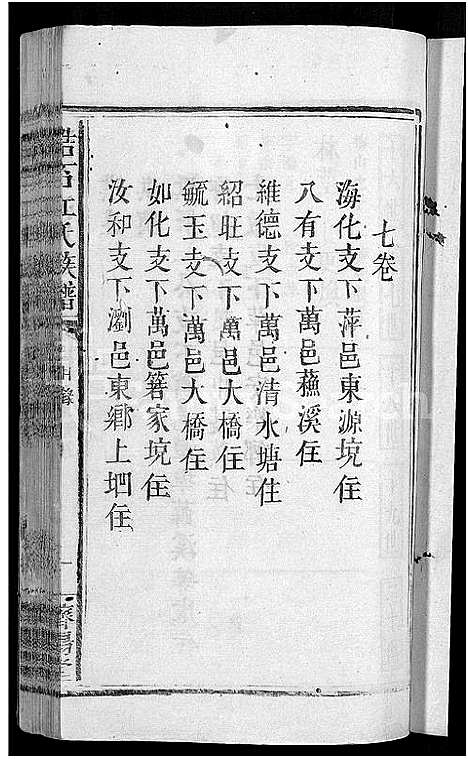 七卷
海化支下萍邑東源坑住
八有支下萬邑蘓溪住
維德支下萬邑清水塘住
紹旺支下萬邑大橋住
毓玉支下萬邑大橋住
如化支下萬邑箬家坑住
汝和支下瀏邑東鄉上垇住
江氏族譜
濟陽堂